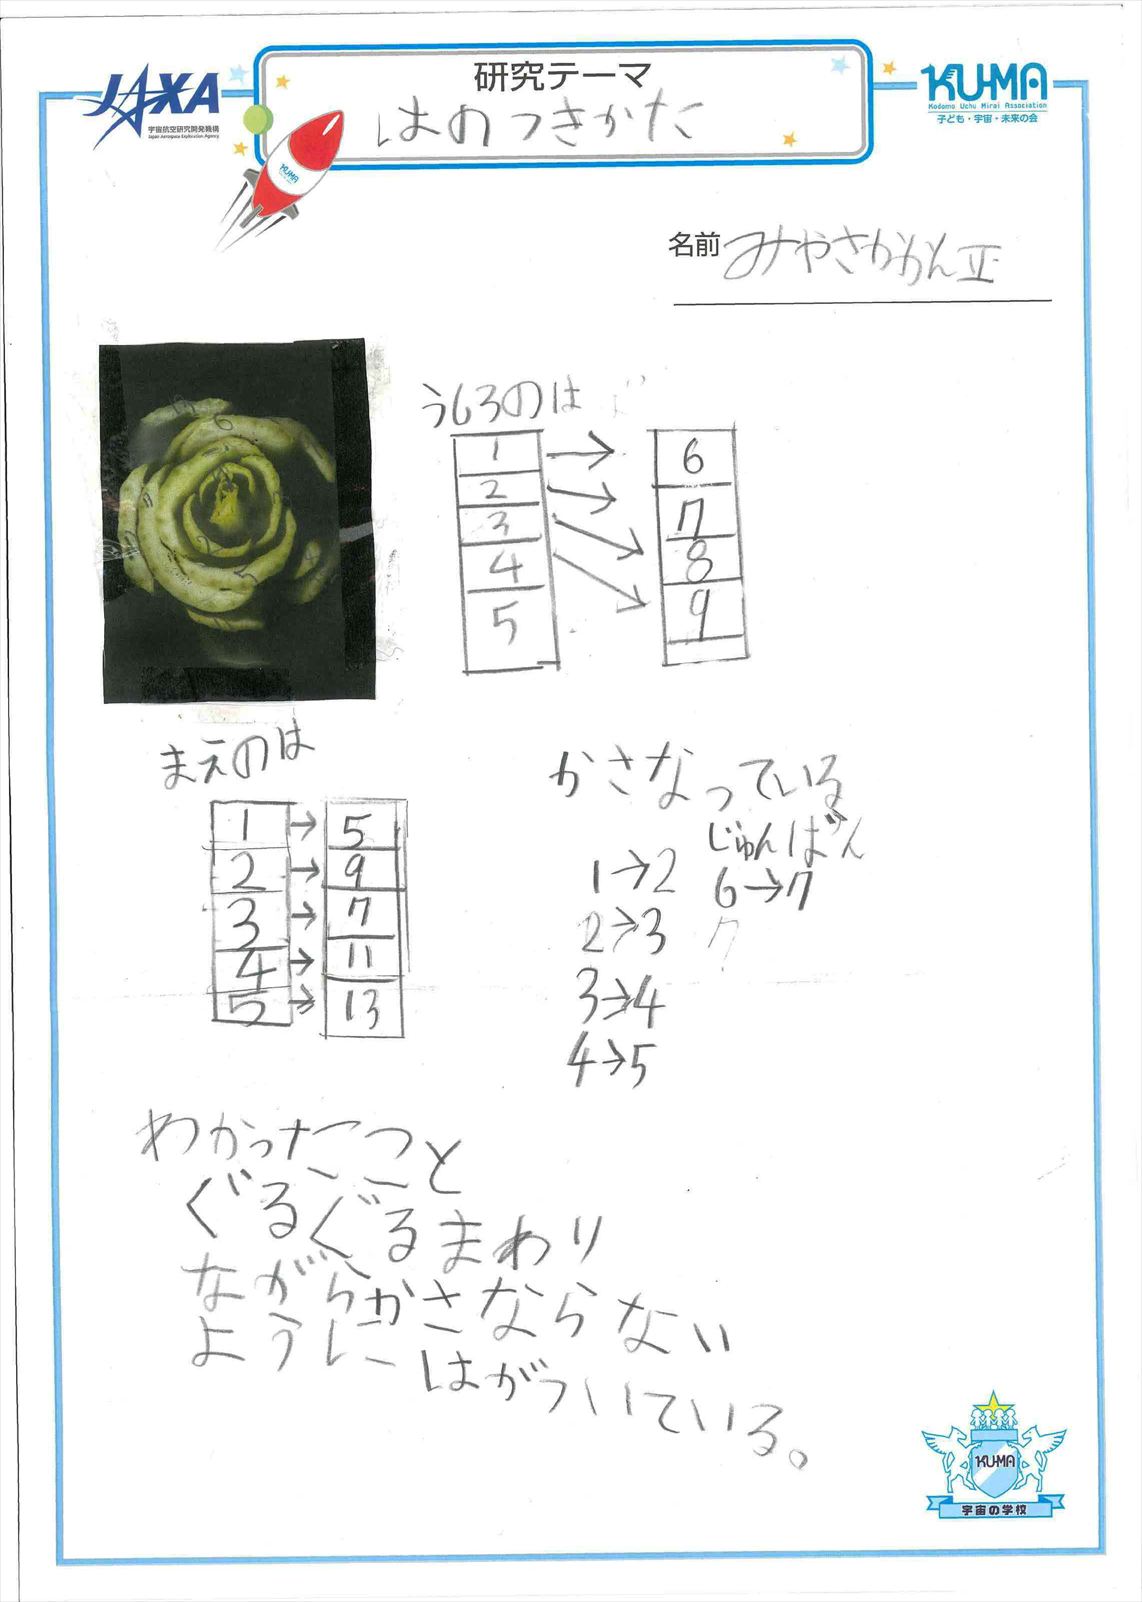 JAXA
宇宙航空研究開発機構
Japan Aerospace Exploration Agency
研究テーマ
はのつきかた
KU-MA
Kodomo Uchu Mirai Association
子ども・宇宙・未来の会
KU-MA
名前 みやさか
うしろのは
1 → 6
2 → 7
3 → 8
4 → 9
5
まえのは
1 → 5
2 → 9
3 → 7
4 → 11
5 → 13
かさなっている
じゅんばん
1→2 6→7
2→3 7
3→4
4→5
わかったこと
ぐるぐるまわり
ながらかさならない
ように はがついている。
KU-MA
宇宙の学校